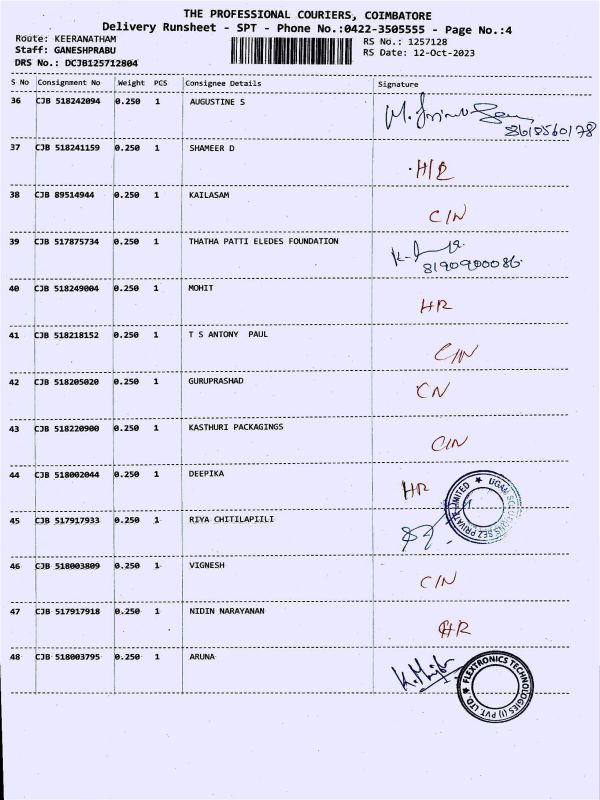 THE PROFESSIONAL COURIERS, COIMBATORE
Delivery Runsheet - SPT - Phone No.:0422-3505555 - Page No.:4
Route: KEERANATHAM RS No.: 1257128
Staff: GANESHPRABU RS Date: 12-Oct-2023
DRS No.: DCJB125712804
S No Consignment No Weight PCS Consignee Details Signature
36 CJB 518242094 0.250 1 AUGUSTINE S
8618560178
37 CJB 518241159 0.250 1 SHAMEER D
H/R
38 CJB 89514944 0.250 1 KAILASAM
C/N
39 CJB 517875734 0.250 1 THATHA PATTI ELEDES FOUNDATION
8190900086
40 CJB 518249004 0.250 1 MOHIT
HR
41 CJB 518218152 0.250 1 T S ANTONY PAUL
C/N
42 CJB 518205020 0.250 1 GURUPRASHAD
CN
43 CJB 518220900 0.250 1 KASTHURI PACKAGINGS
C/N
44 CJB 518002044 0.250 1 DEEPIKA
HR
45 CJB 517917933 0.250 1 RIYA CHITILAPIILI
SOLUTIONS SEZ PRIVATE LIMITED
46 CJB 518003809 0.250 1 VIGNESH
C/N
47 CJB 517917918 0.250 1 NIDIN NARAYANAN
HR
48 CJB 518003795 0.250 1 ARUNA
FLEXTRONICS TECHNOLOGIES (I) PVT. LTD.